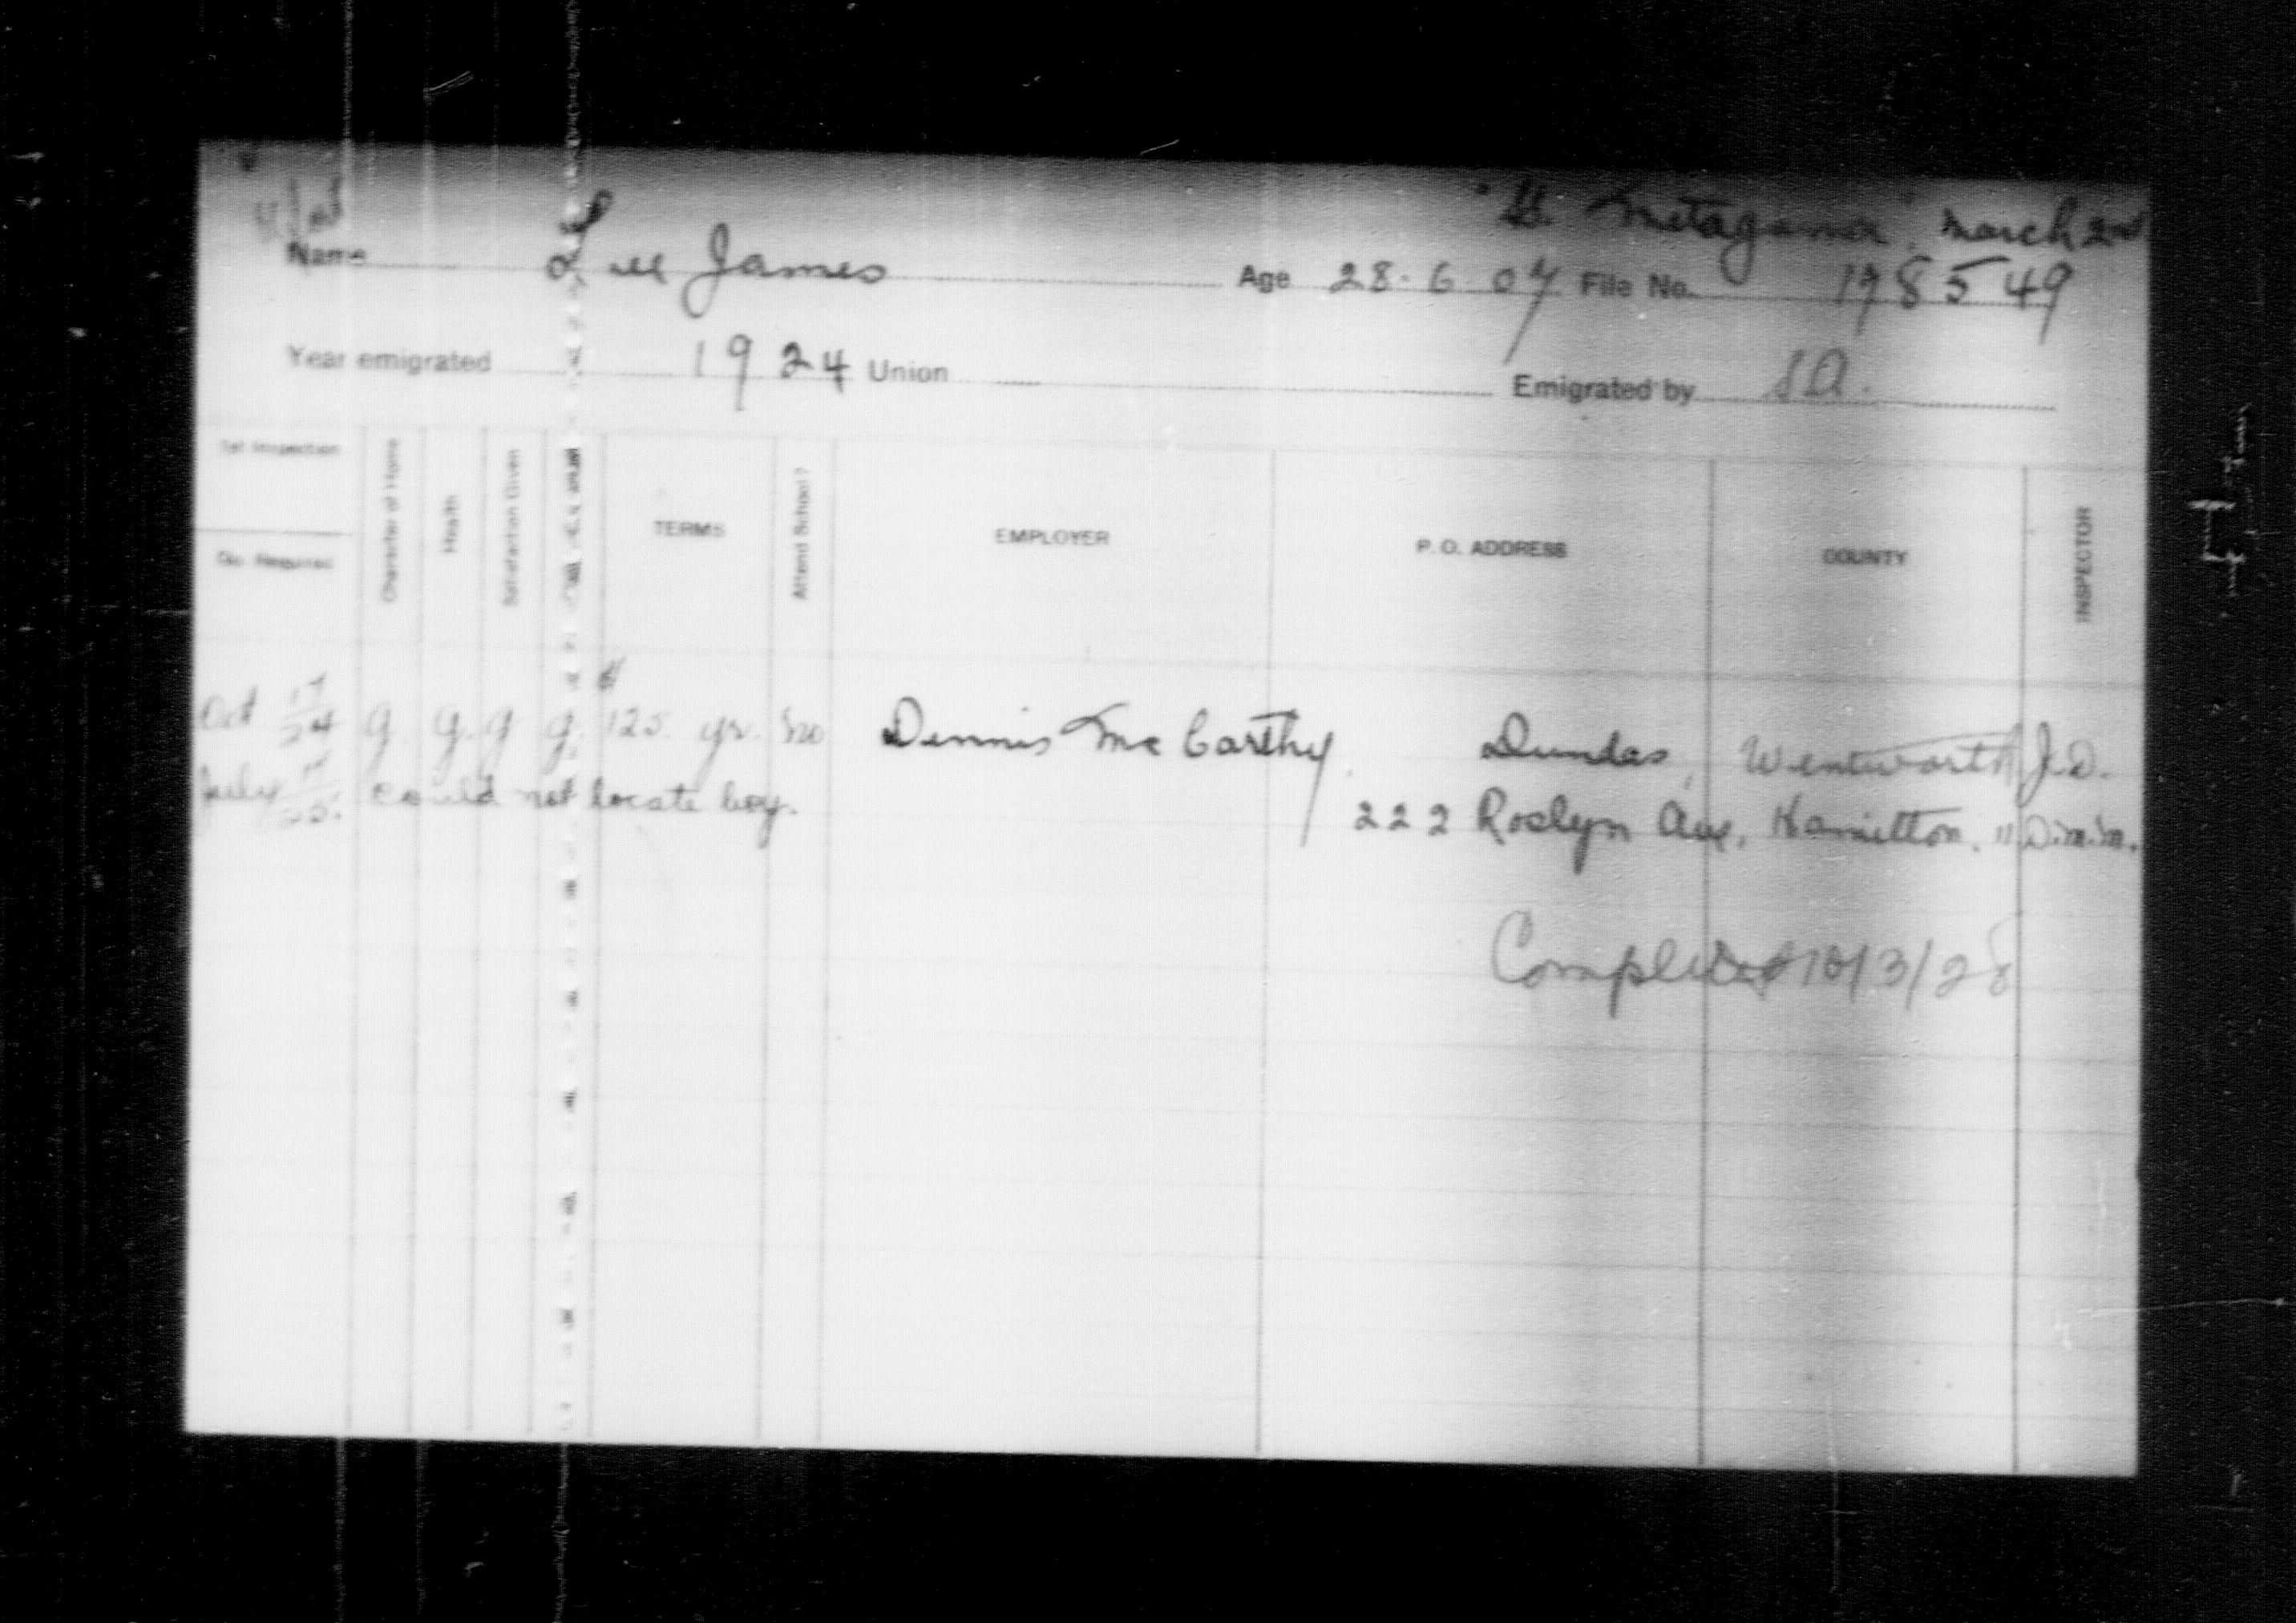 "SS. Metagama" March 2nd
Name Lee James Age 28-6-07 File No. 178549
Year emigrated 1924 Union Emigrated by S.A.
1st Inspection
Go Required
Character of Home
Health
Satisfaction Given
TERMS
Attend School?
EMPLOYER
P. O. ADDRESS
COUNTY
INSPECTOR
Oct 17/24 g. g. g g. $125. yr. no Dennis McCarthy Dundas, Wentworth J.D.
July /25. could not locate boy. 222 Roslyn Ave, Hamilton. " D.M.M.
Completed 10/3/28